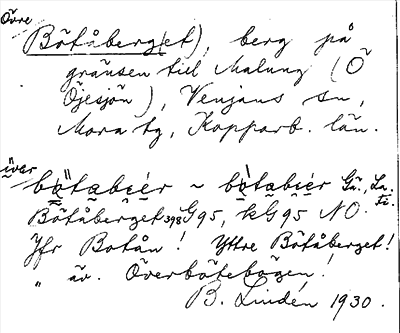 Övre
Bötåberg(et), berg på
gränsen till Malung (Ö
Öjesjön), Venjans sn,
Mora tg, Kopparb. län.
över
bötabẹér ~ bòtabẹér Gä., La.
Fi.
Bötåberget 398 G 95, kG 95 NO.
Jfr Botån! Yttre Bötåberget!
" äv. Överbötebögen!
B. Lindén 1930.